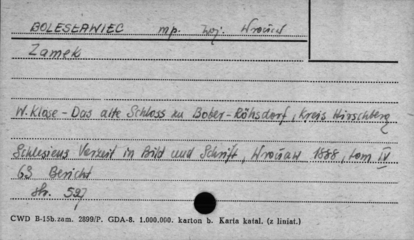 BOLESŁAWIEC mp. woj. Wrocław
Zamek
W. Klose - Das alte Schloss zu Bober-Röhsdorf, Kreis Hirschberg
Schlesiens Vorzeit in Bild und Schrift, Wrocław 1888, tom IV
63 Bericht
Str. 597
CWD B-15b. zam. 2899/P. GDA-8. 1.000.000. karton b. Karta katal. (z liniat.)